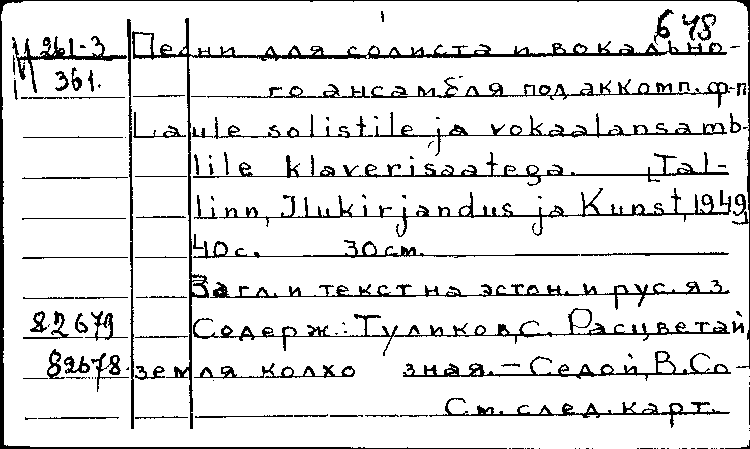 648
М 261-3 Песни для солиста и вокально-
361. го ансамбля под аккомп. ф-п
Laule solistile ja vokaalansamb-
lile klaverisaatega. [Tal-
linn, Ilukirjandus ja Kunst, 1949]
40 с. 30 см.
Загл. и текст на эстон. и рус. яз
82679 Содерж.: Туликов, С. Расцветай,
82678. земля колхо зная. – Седой, В. Со-
См. след. карт.